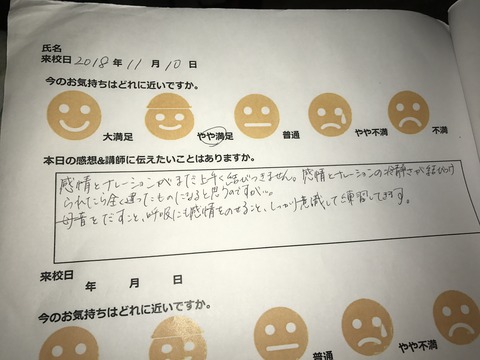 氏名
来校日 2018 年 11 月 10 日
今のお気持ちはどれに近いですか。
大満足 やや満足 普通 やや不満 不満
本日の感想&講師に伝えたいことはありますか。
感情とナレーションがまだ上手く結びつきません。感情とナレーションの冷静さが結びつけ
られたら全く違ったものになると思うのですが…。
母音をだすこと、呼吸にも感情をのせること、しっかり意識して練習してきます。
来校日 年 月 日
今のお気持ちはどれに近いですか。
普通 やや不満